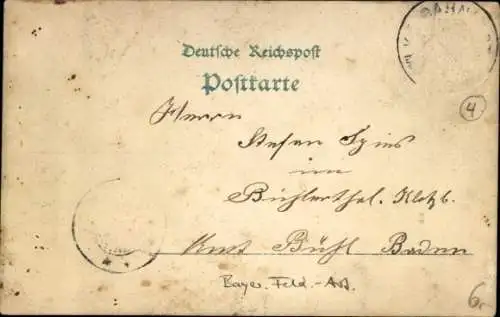 Deutsche Reichspost
Postkarte
4
Herrn
Stefan Spies
im
Bühlerthal. Klotzb.
Amt Bühl Baden
Baye. Feld.-Art.
6,